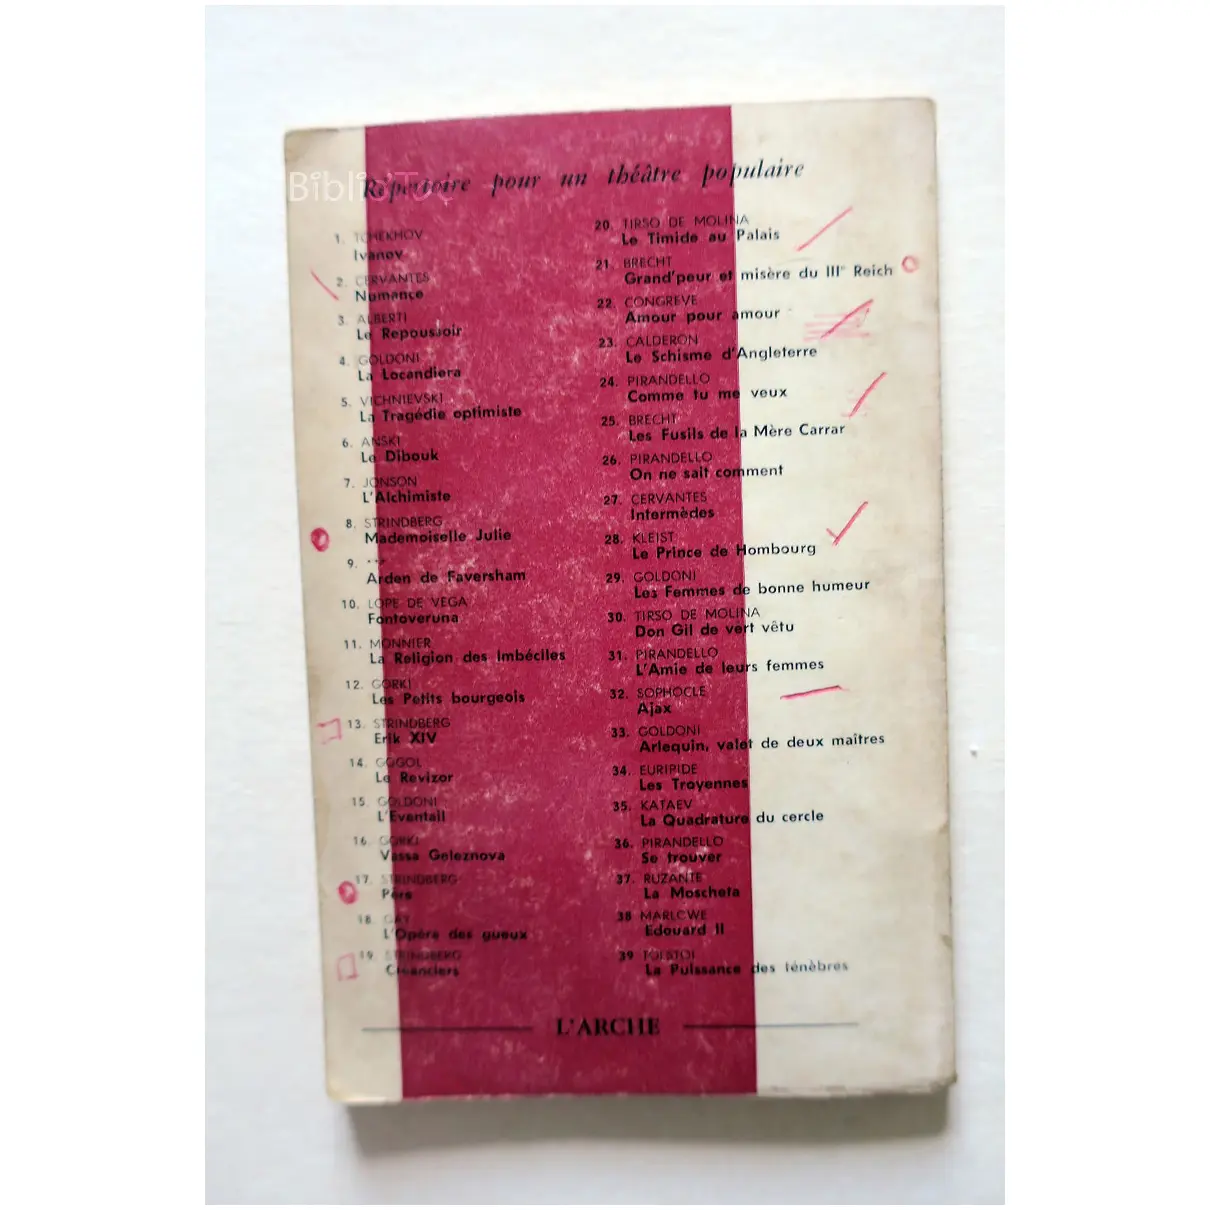 Biblio'Toc
Répertoire pour un théâtre populaire
1. TCHEKHOV
Ivanov
2. CERVANTES
Numance
3. ALBERTI
Le Repoussoir
4. GOLDONI
La Locandiera
5. VICHNIEVSKI
La Tragédie optimiste
6. ANSKI
Le Dibouk
7. JONSON
L'Alchimiste
8. STRINDBERG
Mademoiselle Julie
9. ***
Arden de Faversham
10. LOPE DE VEGA
Fontoveruna
11. MONNIER
La Religion des imbéciles
12. GORKI
Les Petits bourgeois
13. STRINDBERG
Erik XIV
14. GOGOL
Le Revizor
15. GOLDONI
L'Eventail
16. GORKI
Vassa Geleznova
17. STRINDBERG
Père
18. GAY
L'Opéra des gueux
19. STRINDBERG
Créanciers
20. TIRSO DE MOLINA
Le Timide au Palais
21. BRECHT
Grand'peur et misère du IIIe Reich
22. CONGREVE
Amour pour amour
23. CALDERON
Le Schisme d'Angleterre
24. PIRANDELLO
Comme tu me veux
25. BRECHT
Les Fusils de la Mère Carrar
26. PIRANDELLO
On ne sait comment
27. CERVANTES
Intermèdes
28. KLEIST
Le Prince de Hombourg
29. GOLDONI
Les Femmes de bonne humeur
30. TIRSO DE MOLINA
Don Gil de vert vêtu
31. PIRANDELLO
L'Amie de leurs femmes
32. SOPHOCLE
Ajax
33. GOLDONI
Arlequin, valet de deux maîtres
34. EURIPIDE
Les Troyennes
35. KATAEV
La Quadrature du cercle
36. PIRANDELLO
Se trouver
37. RUZANTE
La Moscheta
38 MARLOWE
Edouard II
39 TOLSTOI
La Puissance des ténèbres
L'ARCHE